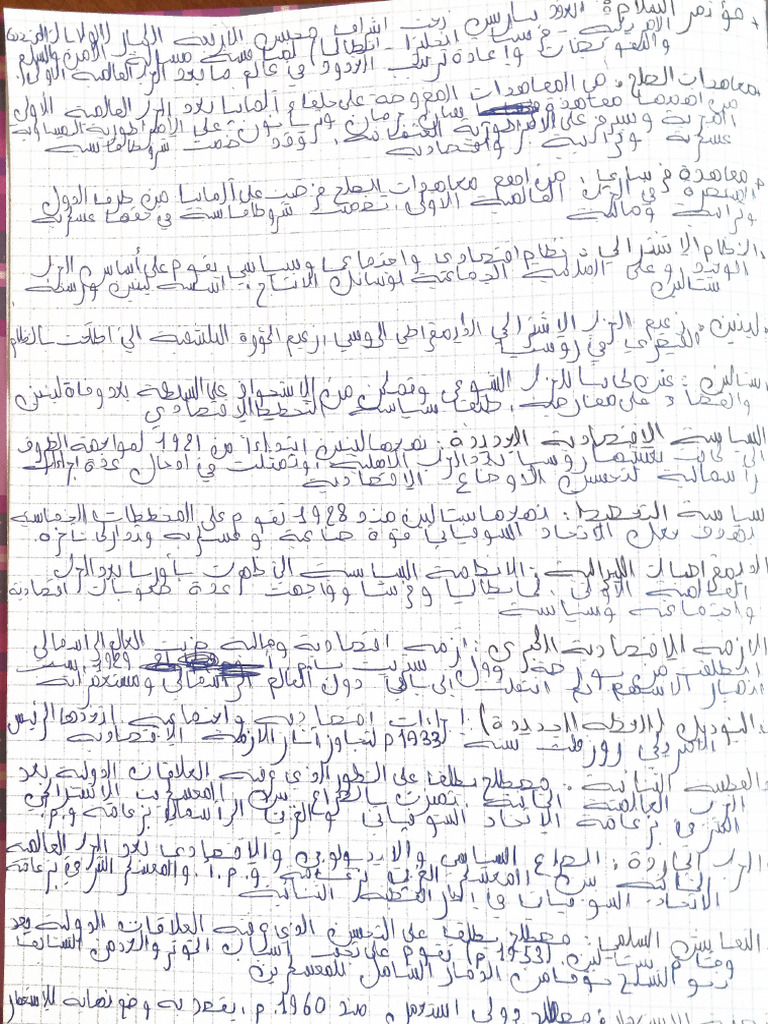 مؤتمر السلام: انعقد بباريس تحت اشراف مجلس الأربعة الكبار (الولايات المتحدة
الامريكية - فرنسا - انجلترا - ايطاليا) لمناقشة مسألة الأمن والسلم
والتعويضات وإعادة ترتيب الحدود في عالم ما بعد الحرب العالمية الأولى.
معاهدات الصلح: هي المعاهدات المفروضة على حلفاء ألمانيا بعد الحرب العالمية الأولى
من اهمها معاهدة سان جرمان وتريانون على الامبراطورية النمساوية
المجرية وسيفر على الامبراطورية العثمانية، وقد ضمت شروطا قاسية
عسكرية وترابية واقتصادية
معاهدة فرساي: من أهم معاهدات الصلح فرضت على ألمانيا من طرف الدول
المنتصرة في الحرب العالمية الاولى، تضمنت شروطا قاسية في حقها عسكرية
وترابية ومالية
النظام الاشتراكي: نظام اقتصادي واجتماعي وسياسي يقوم على أساس الحزب
الوحيد وعلى الملكية الجماعية لوسائل الانتاج، اسسه لينين ورسخه
ستالين
لينين: زعيم الحزب الاشتراكي الديمقراطي الروسي، زعيم الثورة البلشفية التي اطاحت بالنظام
القيصري في روسيا
ستالين: عين كاتبا للحزب الشيوعي وتمكن من الاستحواذ على السلطة بعد وفاة لينين
والقضاء على معارضيه، طبق سياسة التخطيط الاقتصادي
السياسة الاقتصادية الجديدة: نهجها لينين ابتداءا من 1921 لمواجهة الظروف
التي كانت تعيشها روسيا بعد الحرب الاهلية، وتمثلت في ادخال عدة إجراءات
رأسمالية لتحسين الاوضاع الاقتصادية
سياسة التخطيط: نهجها ستالين منذ 1928 تقوم على المخططات الخماسية
بهدف جعل الاتحاد السوفياتي قوة صناعية وعسكرية وتجارية بارزة.
الديمقراطيات الليبرالية: الأنظمة السياسية التي ظهرت بأوربا بعد الحرب
العالمية الأولى كإيطاليا وفرنسا وواجهت عدة صعوبات اقتصادية
واجتماعية وسياسية
الازمة الاقتصادية الكبرى: أزمة اقتصادية ومالية ضربت العالم الرأسمالي
انطلقت من بورصة وول ستريت يوم 1929 بسبب
انهيار الأسهم ثم انتقلت إلى باقي دول العالم الرأسمالي ومستعمراته
النيوديل (الخطة الجديدة): إجراءات اقتصادية واجتماعية اتخذها الرئيس
الأمريكي روزفلت سنة 1933م لتجاوز آثار الازمة الاقتصادية
القطبية الثنائية: مصطلح يطلق على التطور الذي عرفته العلاقات الدولية بعد
الحرب العالمية الثانية تميزت بالصراع بين المعسكرين الاشتراكي
الشرقي بزعامة الاتحاد السوفياتي والغربي الرأسمالي بزعامة و.م.
الحرب الباردة: الصراع السياسي والايديولوجي والاقتصادي بعد الحرب العالمية
الثانية بين المعسكر الغربي بزعامة و.م.أ. والمعسكر الشرقي بزعامة
الاتحاد السوفياتي في إطار القطبية الثنائية
التعايش السلمي: مصطلح يطلق على التحسن الذي عرفته العلاقات الدولية بعد
وفاة ستالين (1953م) يقوم على تجنب أسباب التوتر والحد من السباق
نحو التسلح خوفا من الدمار الشامل للمعسكرين
مصطلح دولي استعمل منذ 1960م. يقصد به وضع نهاية للاستعمار